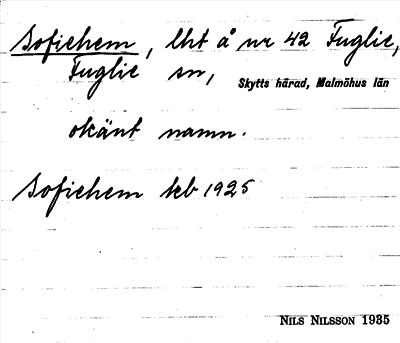 Sofiehem, lht å nr 42 Fuglie,
Fuglie sn, Skytts härad, Malmöhus län
okänt namn.
Sofiehem kb 1925
NILS NILSSON 1935